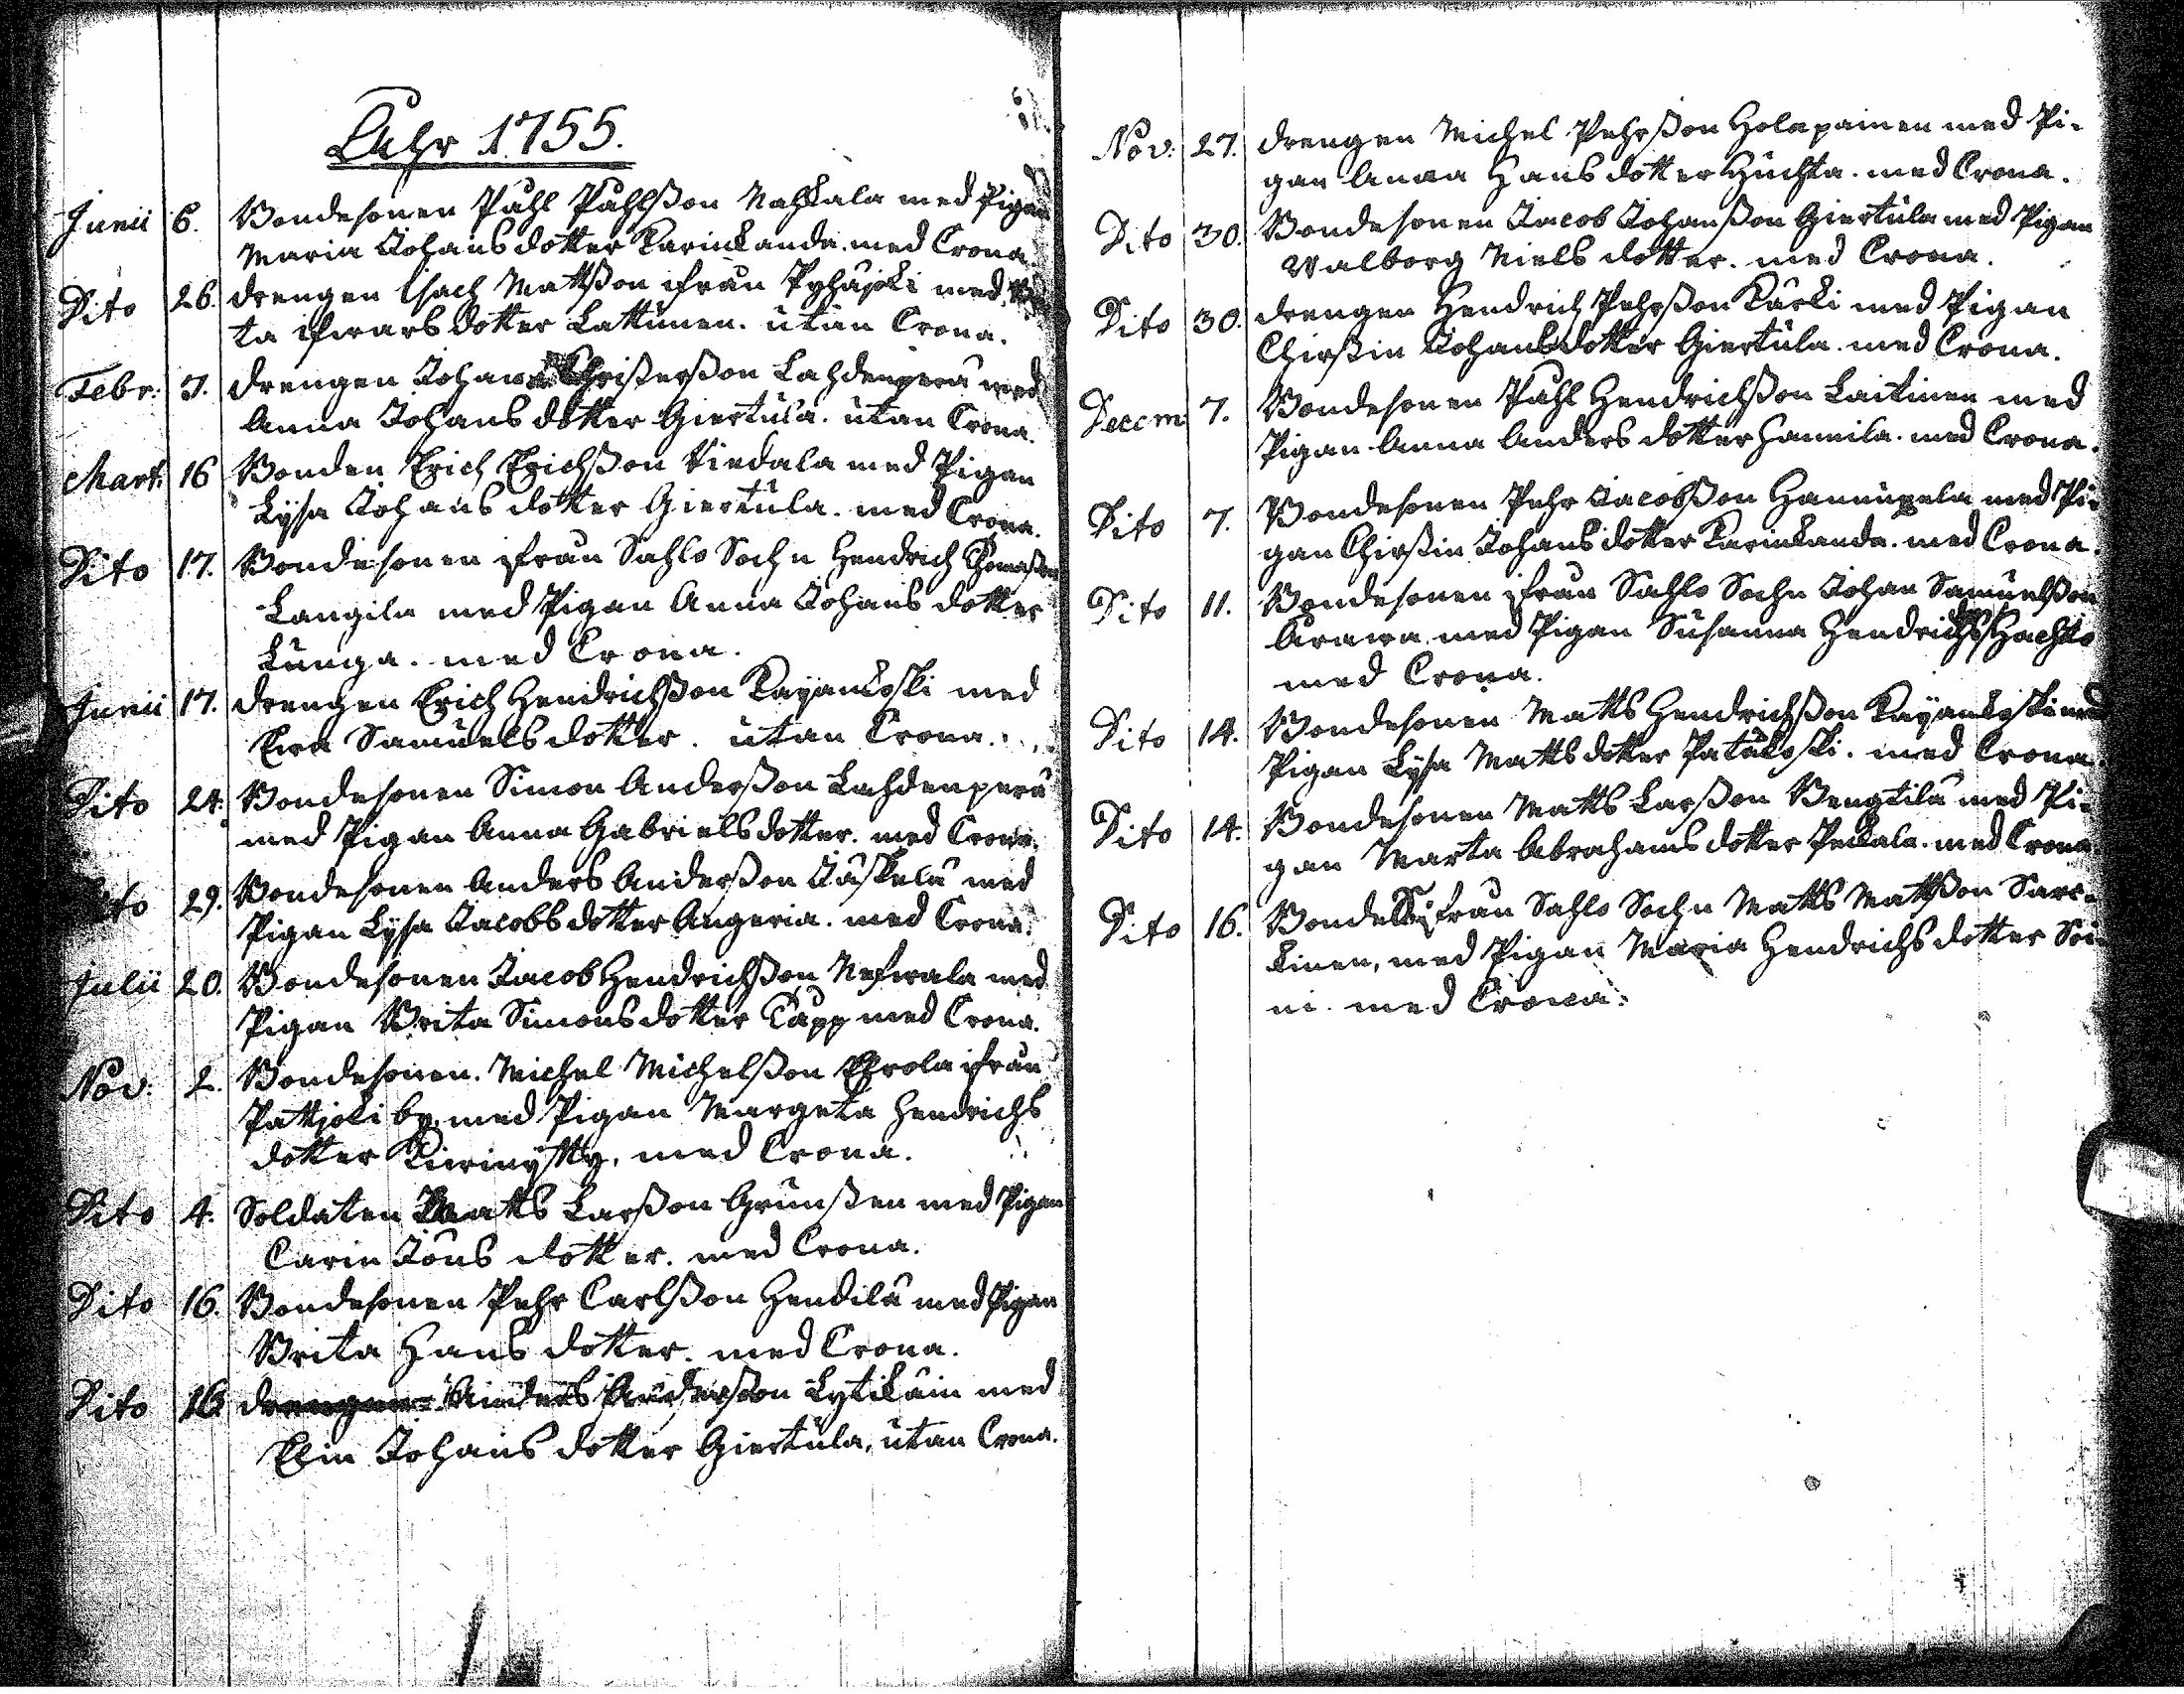 Åhr 1755.
Junii 6. Bondesonen Påhl Påhlsson Nahkala med Pigan
Maria Johans dotter Karinkanda. med Crona.
Dito 26. drengen Isach Mattsson ifrån Pyhäjoki med
ta Ifvars dotter Lattunen. utan Crona.
Febr: 3. drengen Johan Christersson Lahdenperä med
Anna Johans dotter Giertula. utan Crona.
Mart: 16 Bonden Erich Erichsson Viedala med Pigan
Lysa Johans dotter Giertula. med Crona.
Dito 17. Bondesonen ifrån Sahlo Sochn Hendrich Thomasson
Langila med Pigan Anna Johans dotter
Lunga. med Crona.
Junii 17. drengen Erich Hendrichsson Kayankoski med
Ewa Samuels dotter. utan Crona.
Dito 24. Bondesonen Simon Andersson Lahdenperä
med Pigan Anna Gabriels dotter. med Crona.
Dito 29. Bondesonen Anders Andersson Jäskelä med
Pigan Lysa Jacobs dotter Angeria. med Crona.
Julii 20. Bondesonen Jacob Hendrichsson Nefvala med
Pigan Brita Simons dotter Kapp med Crona.
Nov: 2. Bondesonen. Michel Michelsson Eerola ifrån
Pattjoki by, med Pigan Margeta Hendrichs
dotter Kivinytty, med Crona.
Dito 4. Soldaten Matts Larsson Grunsten med Pigan
Carin Jöns dotter. med Crona.
Dito 16. Bondesonen Pehr Carlsson Hendilä med Pigan
Brita Hans dotter. med Crona.
Dito 16 drengen Anders Andersson Lytikäin med
Elin Johans dotter Giertula, utan Crona.
Nov: 27. drengen Michel Pehrsson Holapainen med Pi-
gan Anna Hans dotter Huchta. med Crona.
Dito 30. Bondesonen Jacob Johansson Giertula med Pigan
Walborg Niels dotter. med Crona.
Dito 30. drengen Hendrich Pehrsson Kurki med Pigan
Chirstin Johans dotter Giertula. med Crona.
Decem: 7. Bondesonen Påhl Hendrichsson Laitinen med
Pigan Anna Anders dotter Hannila. med Crona.
Dito 7. Bondesonen Pehr Jacobsson Hannuxela med Pi-
gan Chirstin Johans dotter Karinkanda. med Crona.
Dito 11. Bondesonen ifrån Sahlo Sochn Johan Samuelsson
Arawa med Pigan Susanna Hendrichs Hachto
med Crona.
Dito 14. Bondesonen Matts Hendrichsson Kayankoski med
Pigan Lysa Matts dotter Patakoski. med Crona.
Dito 14. Bondesonen Matts Larsson Bengtilä med Pi-
gan Marta Abrahams dotter Peckala. med Crona.
Dito 16. Bonde ifrån Sahlo Sochn Matts Mattsson Sare-
kinen, med Pigan Maria Hendrichs dotter Soi-
ni. med Crona.